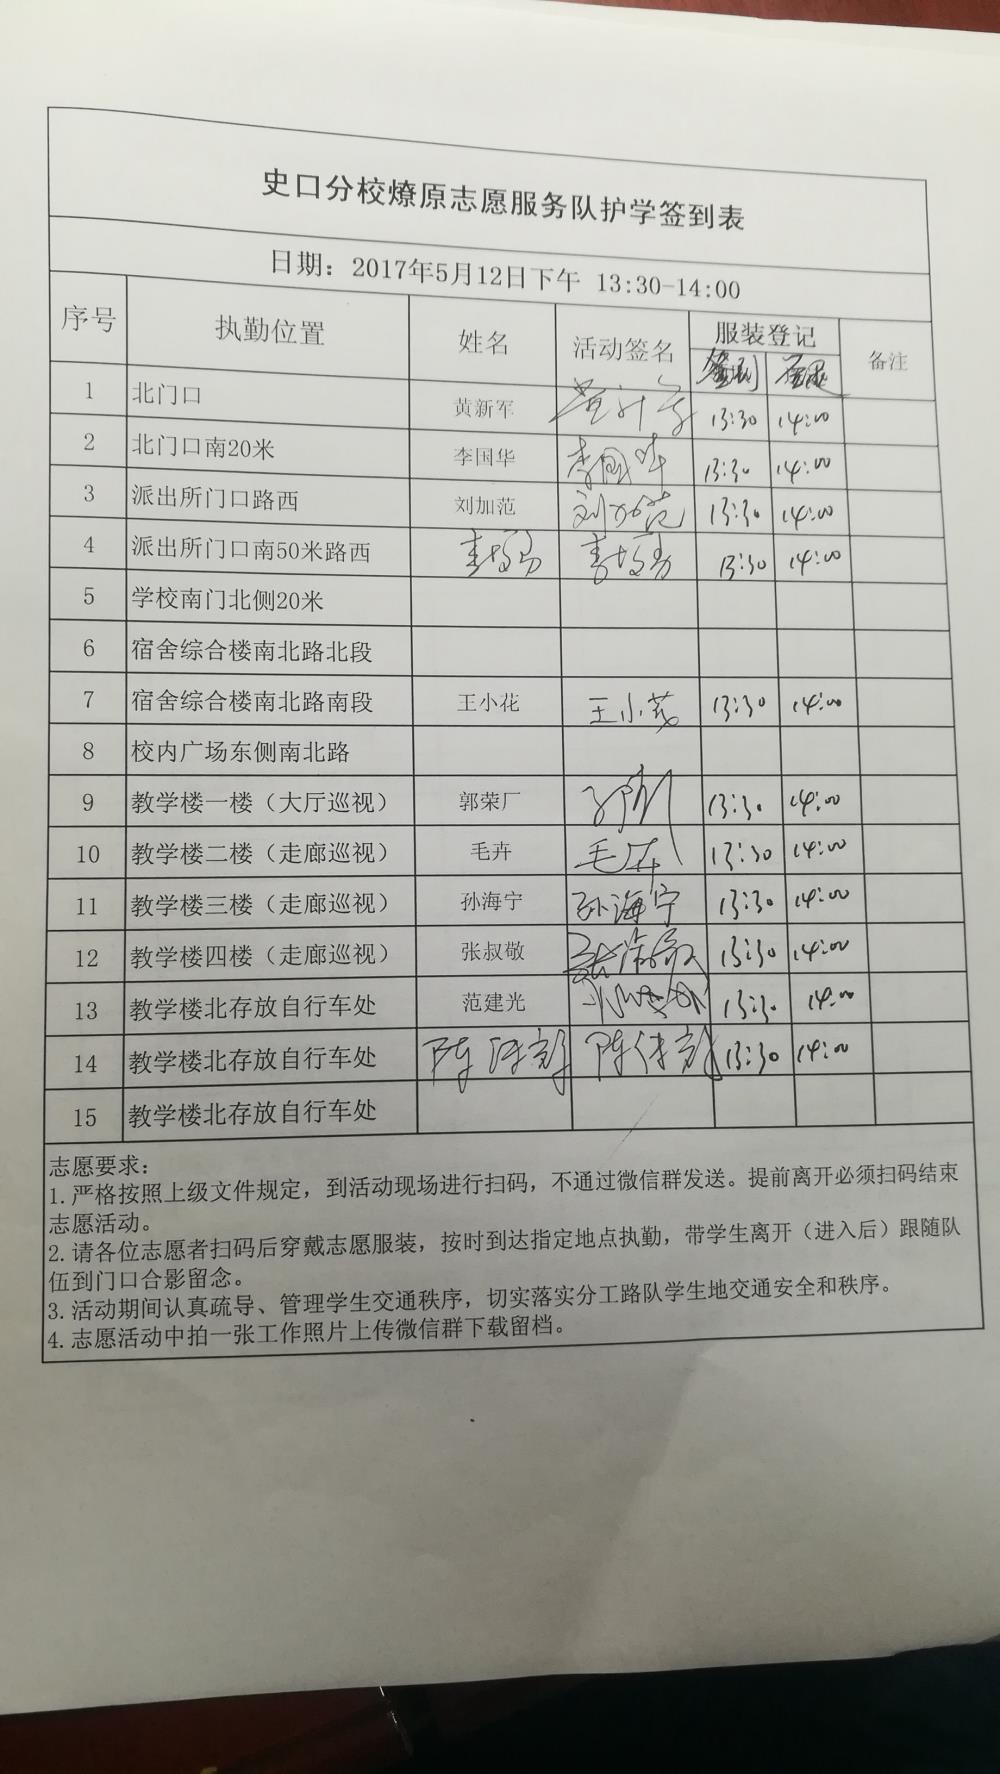 史口分校燎原志愿服务队护学签到表
日期：2017年5月12日下午 13:30-14:00
序号 执勤位置 姓名 活动签名 服装登记 备注
签到
1 北门口 黄新军 黄新军 13:30 14:00
2 北门口南20米 李国华 李国华 13:30 14:00
3 派出所门口路西 刘加范 刘加范 13:30 14:00
4 派出所门口南50米路西 13:30 14:00
5 学校南门北侧20米
6 宿舍综合楼南北路北段
7 宿舍综合楼南北路南段 王小花 王小花 13:30 14:00
8 校内广场东侧南北路
9 教学楼一楼（大厅巡视） 郭荣厂 13:30 14:00
10 教学楼二楼（走廊巡视） 毛卉 毛卉 13:30 14:00
11 教学楼三楼（走廊巡视） 孙海宁 孙海宁 13:30 14:00
12 教学楼四楼（走廊巡视） 张叔敬 张叔敬 13:30 14:00
13 教学楼北存放自行车处 范建光 13:30 14:00
14 教学楼北存放自行车处 陈 陈 13:30 14:00
15 教学楼北存放自行车处
志愿要求：
1.严格按照上级文件规定，到活动现场进行扫码，不通过微信群发送。提前离开必须扫码结束
志愿活动。
2.请各位志愿者扫码后穿戴志愿服装，按时到达指定地点执勤，带学生离开（进入后）跟随队
伍到门口合影留念。
3.活动期间认真疏导、管理学生交通秩序，切实落实分工路队学生地交通安全和秩序。
4.志愿活动中拍一张工作照片上传微信群下载留档。